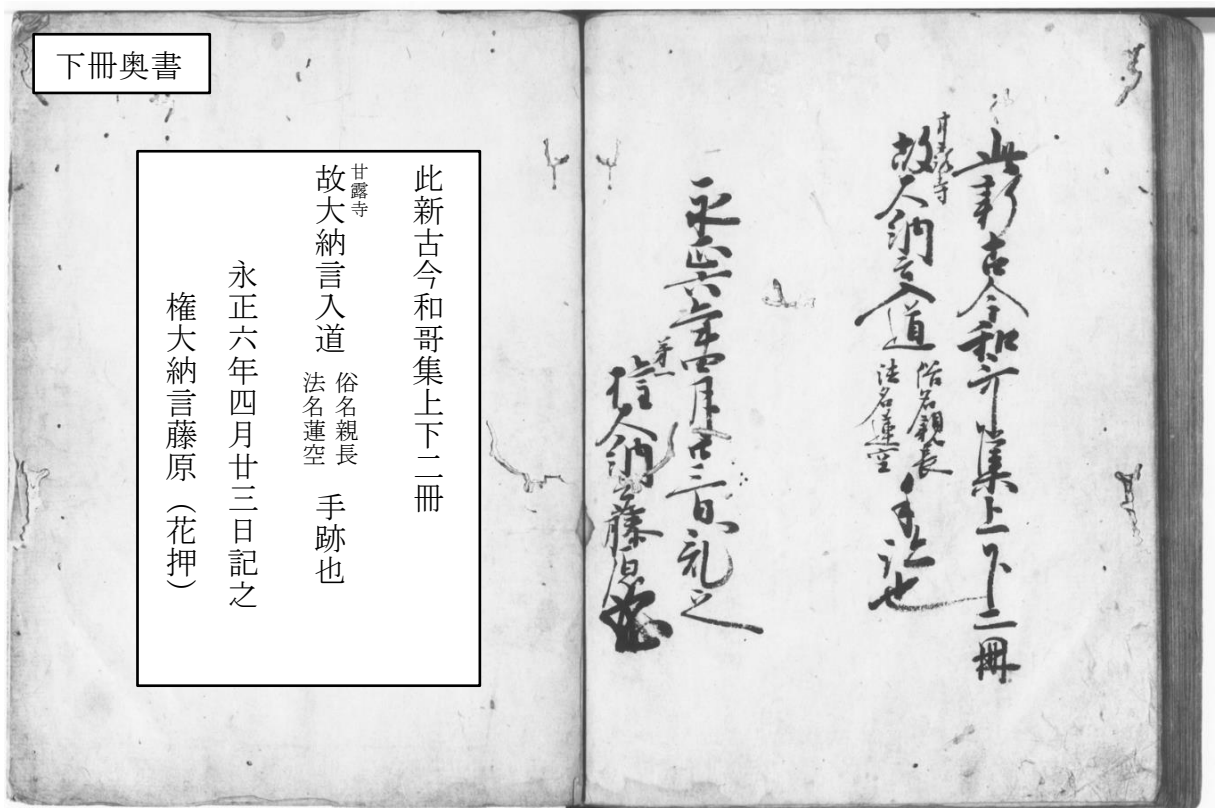 下冊奥書
此新古今和哥集上下二冊
甘露寺
故大納言入道
俗名親長
法名蓮空
手跡也
永正六年四月廿三日記之
権大納言藤原（花押）
此新古今和哥集上下二冊
甘露寺
故大納言入道
俗名親長
法名蓮空
手跡也
永正六年四月廿三日記之
権大納言藤原